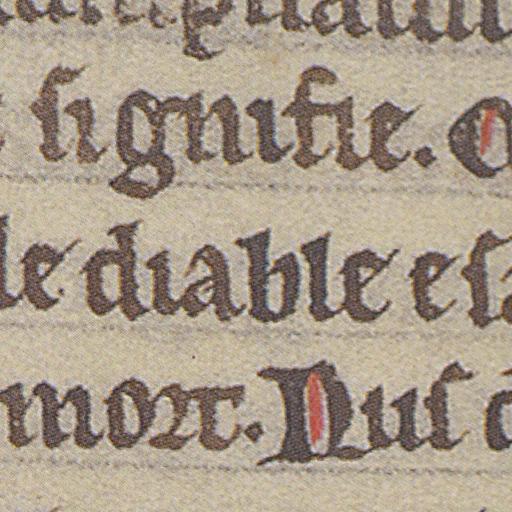 ſignifie.
le diable eſ
mort. Nuſ